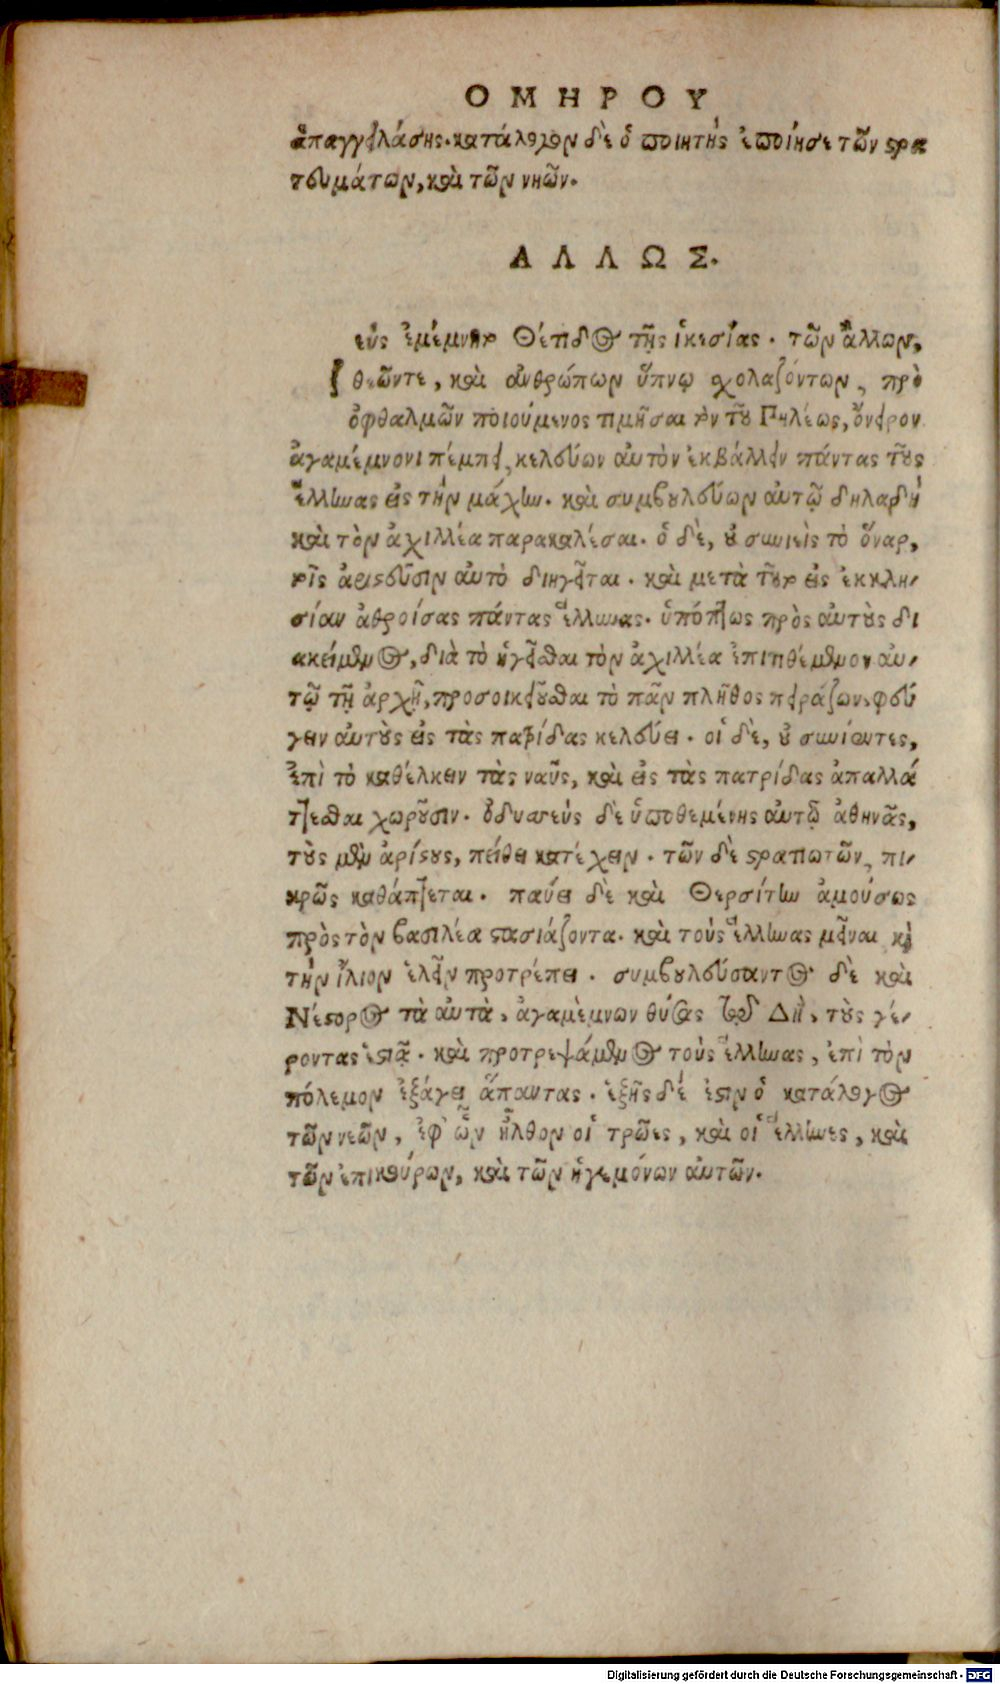 ΟΜΗΡΟΥ
ἀπαγγειλάσης. κατάλογον δὲ ὁ ποιητὴς ἐποίησε τῶν στρα
τευμάτων, καὶ τῶν νηῶν.
ΑΛΛΩΣ.
εὺς ἐμέμνητο Θέτιδος τῆς ἱκεσίας. τῶν ἄλλων,
θεῶντε, καὶ ἀνθρώπων ὕπνῳ σχολαζόντων, πρὸ
ὀφθαλμῶν ποιούμενος τιμῆσαι τὸν τοῦ Πηλέως, ὄνειρον
ἀγαμέμνονι πέμπει, κελεύων αὐτὸν ἐκβάλλειν πάντας τοὺς
ἕλληνας εἰς τὴν μάχην. καὶ συμβουλεύων αὐτῷ δηλαδὴ
καὶ τὸν ἀχιλλέα παρακαλέσαι. ὁ δὲ, οὐ συνιεὶς τὸ ὄναρ,
τοῖς ἀριστεῦσιν αὐτὸ διηγεῖται. καὶ μετὰ τοῦτο εἰς ἐκκλη-
σίαν ἀθροίσας πάντας ἕλληνας. ὑπόπτως πρὸς αὐτοὺς δι
ακείμενος, διὰ τὸ ἡγεῖσθαι τὸν ἀχιλλέα ἐπιτιθέμενον αὐ-
τῷ τῇ ἀρχῇ, προσοικειοῦσθαι τὸ πᾶν πλῆθος πειράζων, φεύ
γειν αὐτοὺς εἰς τὰς πατρίδας κελεύει. οἱ δὲ, οὐ συνιέντες,
ἐπὶ τὸ καθέλκειν τὰς ναῦς, καὶ εἰς τὰς πατρίδας ἀπαλλά
τεσθαι χωροῦσιν. ὀδυσσεὺς δὲ ὑποθεμένης αὐτῷ ἀθηνᾶς,
τοὺς μὲν ἀρίστους, πείθει κατέχειν. τῶν δὲ στρατιωτῶν, πι-
κρῶς καθάπτεται. παύει δὲ καὶ Θερσίτην ἀμούσως
πρὸς τὸν βασιλέα στασιάζοντα. καὶ τοὺς ἕλληνας μεῖναι καὶ
τὴν ἴλιον ἑλεῖν προτρέπει. συμβουλεύσαντος δὲ καὶ
Νέστορος τὰ αὐτὰ, ἀγαμέμνων θύσας τῷ Διὶ, τοὺς γέ-
ροντας ἑστιᾷ. καὶ προτρεψάμενος τοὺς ἕλληνας, ἐπὶ τὸν
πόλεμον ἐξάγει ἅπαντας. ἑξῆς δέ ἐστιν ὁ κατάλογος
τῶν νεῶν, ἐφ' ὧν ἦλθον οἱ τρῶες, καὶ οἱ ἕλληνες, καὶ
τῶν ἐπικούρων, καὶ τῶν ἡγεμόνων αὐτῶν.
Digitalisierung gefördert durch die Deutsche Forschungsgemeinschaft - DFG